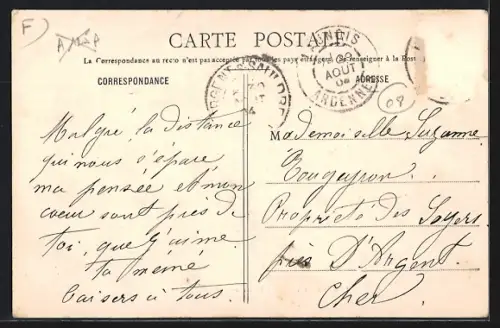 F
CARTE POSTALE
La Correspondance au recto n'est pas acceptée par tous les pays étrangers. (Se renseigner à la Poste
CORRESPONDANCE
ADRESSE
AOUT
ARDENNES
08
Malgré la distance
qui nous s'épare
ma pensée et mon
coeur sont près de
toi, que j'aime.
ta mémé
baisers à tous.
Mademoiselle Suzanne
Propriété des
près D'Argent
Cher